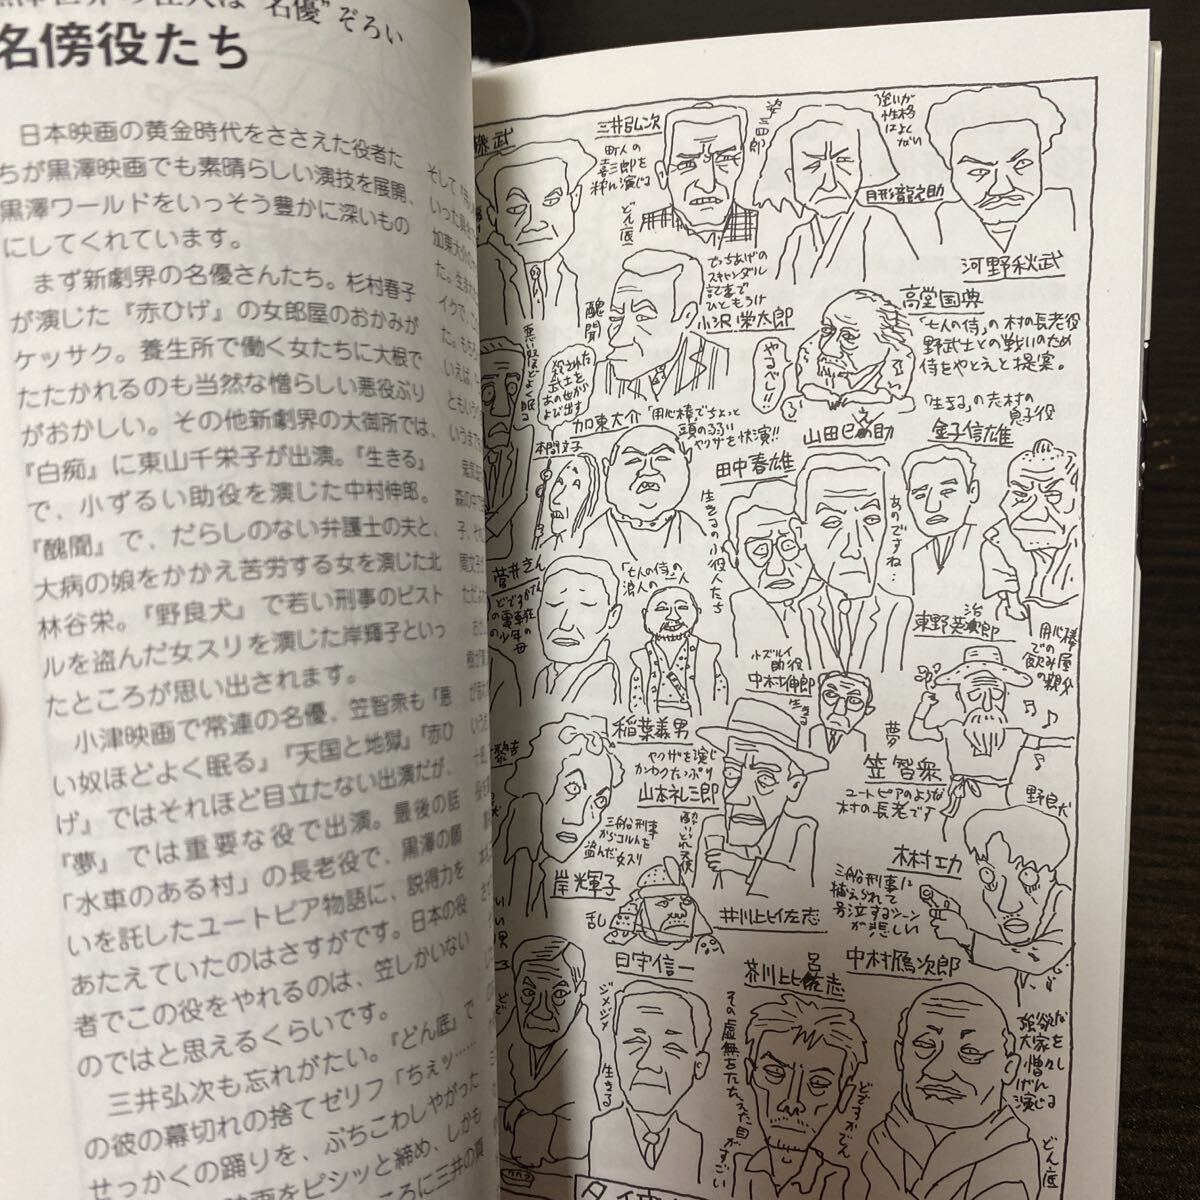 名傍役たち
日本映画の黄金時代をささえた役者た
ちが黒澤映画でも素晴らしい演技を展開、
黒澤ワールドをいっそう豊かに深いもの
にしてくれています。
まず新劇界の名優さんたち。杉村春子
が演じた『赤ひげ』の女郎屋のおかみが
ケッサク。養生所で働く女たちに大根で
たたかれるのも当然な憎らしい悪役ぶり
がおかしい。その他新劇界の大御所では、
『白痴』に東山千栄子が出演。『生きる』
で、小ずるい助役を演じた中村伸郎。
『醜聞』で、だらしのない弁護士の夫と、
大病の娘をかかえ苦労する女を演じた北
林谷栄。『野良犬』で若い刑事のピスト
ルを盗んだ女スリを演じた岸輝子といっ
たところが思い出されます。
小津映画で常連の名優、笠智衆も『悪
い奴ほどよく眠る』『天国と地獄』『赤ひ
げ』ではそれほど目立たない出演だが、
『夢』では重要な役で出演。最後の話
「水車のある村」の長老役で、黒澤の願
いを託したユートピア物語に、説得力を
あたえていたのはさすがです。日本の役
者でこの役をやれるのは、笠しかいない
のではと思えるくらいです。
三井弘次も忘れがたい。『どん底』で
の彼の幕切れの捨てゼリフ「ちぇッ……
せっかくの踊りを、ぶちこわしやがった
映画をピシッと締め、しかも
ころに三井の真
三井弘次
町人の
喜三郎を
どん底
姿三四郎
月形龍之助
強いが
性格
はよく
ない
河野秋武
醜聞
でっちあげの
スキャンダル
記事で
ひともうけ
小沢栄太郎
高堂国典
「七人の侍」の村の長老役
野武士との戦いのため
侍をやとえと提案。
やるべし!!
悪い奴ほどよく眠る
殺された
武士を
あの世から
よび出す
本間文子
加東大介「用心棒」でちょっと
頭の弱い
ヤクザを快演!!
山田巳之助
「生きる」の志村の
息子役
金子信雄
田中春雄
生きるの小役人たち
あのですね…
菅井きん
「七人の侍」の
浪人の一人
稲葉義男
小ズルイ
助役
中村伸郎
生きる
東野英治郎
用心棒
での
飲み屋
の親父
夢
笠智衆
ユートピアのような
村の長老です
ヤクザを演じ
カンロクたっぷり
山本礼三郎
酔いどれ天使
三船刑事
からコルトを
盗んだ女スリ
岸輝子
野良犬
木村功
三船刑事に
捕えられて
号泣するシーン
が悲しい
乱
井川比佐志
日守信一
ジメジメ
生きる
芥川比呂志
その虚無をたたえた目がすごい
どですかでん
中村鴈次郎
強欲な
大家を
憎々し
げに
演じる
どん底